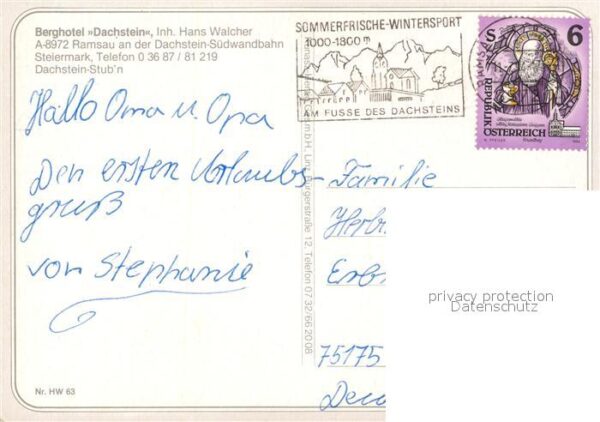 Berghotel »Dachstein«, Inh. Hans Walcher
A-8972 Ramsau an der Dachstein-Südwandbahn
Steiermark, Telefon 0 36 87 / 81 219
Dachstein-Stub'n
SOMMERFRISCHE-WINTERSPORT
1000-1800 m
AM FUSSE DES DACHSTEINS
S 6
REPUBLIK
ÖSTERREICH
Hallo Oma u. Opa
Den ersten Urlaubs-
gruß
von Stephanie
Familie
75175
privacy protection
Datenschutz
Nr. HW 63
12, Telefon 07 32/66 20 08